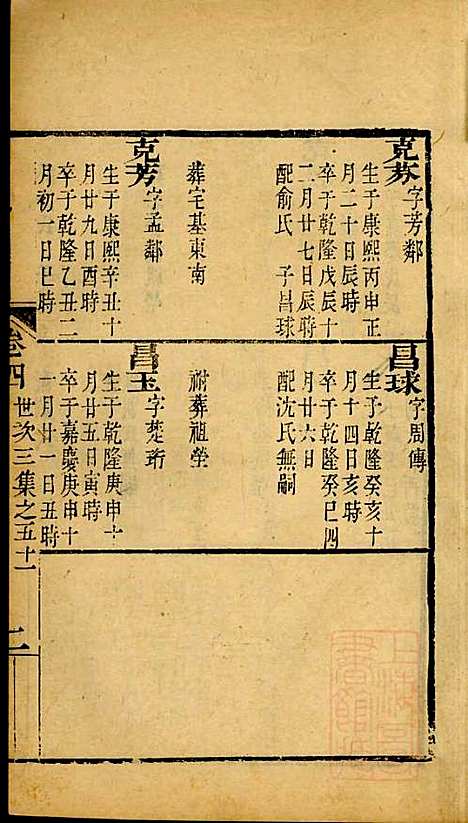 克芬 字芳鄰
生于康熙丙申正
月二十日辰時
卒于乾隆戊辰十
二月廿七日辰時
配俞氏 子昌球
葬宅基東南
克芳 字孟鄰
生于康熙辛丑十
月廿九日酉時
卒于乾隆乙丑二
月初一日巳時
昌球 字周傳
生于乾隆癸亥十
月十四日亥時
卒于乾隆癸巳四
月廿六日
配沈氏無嗣
祔葬祖塋
昌玉 字楚珩
生于乾隆庚申十
月廿五日寅時
卒于嘉慶庚申十
一月廿一日丑時
卷四 世次三集之五十一 二